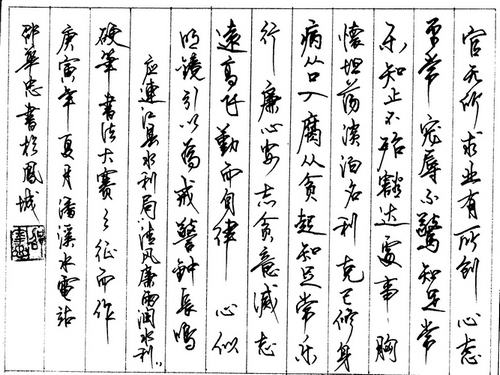 官无所求业有所创 心态
平常 宠辱不惊 知足常
乐知止不殆豁达处事 胸
怀坦荡淡泊名利 克己修身
病从口入腐从贪起知足常乐
行 廉心安 志贪意灭 志
远高于勤而自律 心似
明镜引以为戒 警钟长鸣
应连江县水利局“清风廉雨润水利”
硬笔书法大赛之征而作
庚寅年夏月潘溪水电站
邵华忠书于凤城